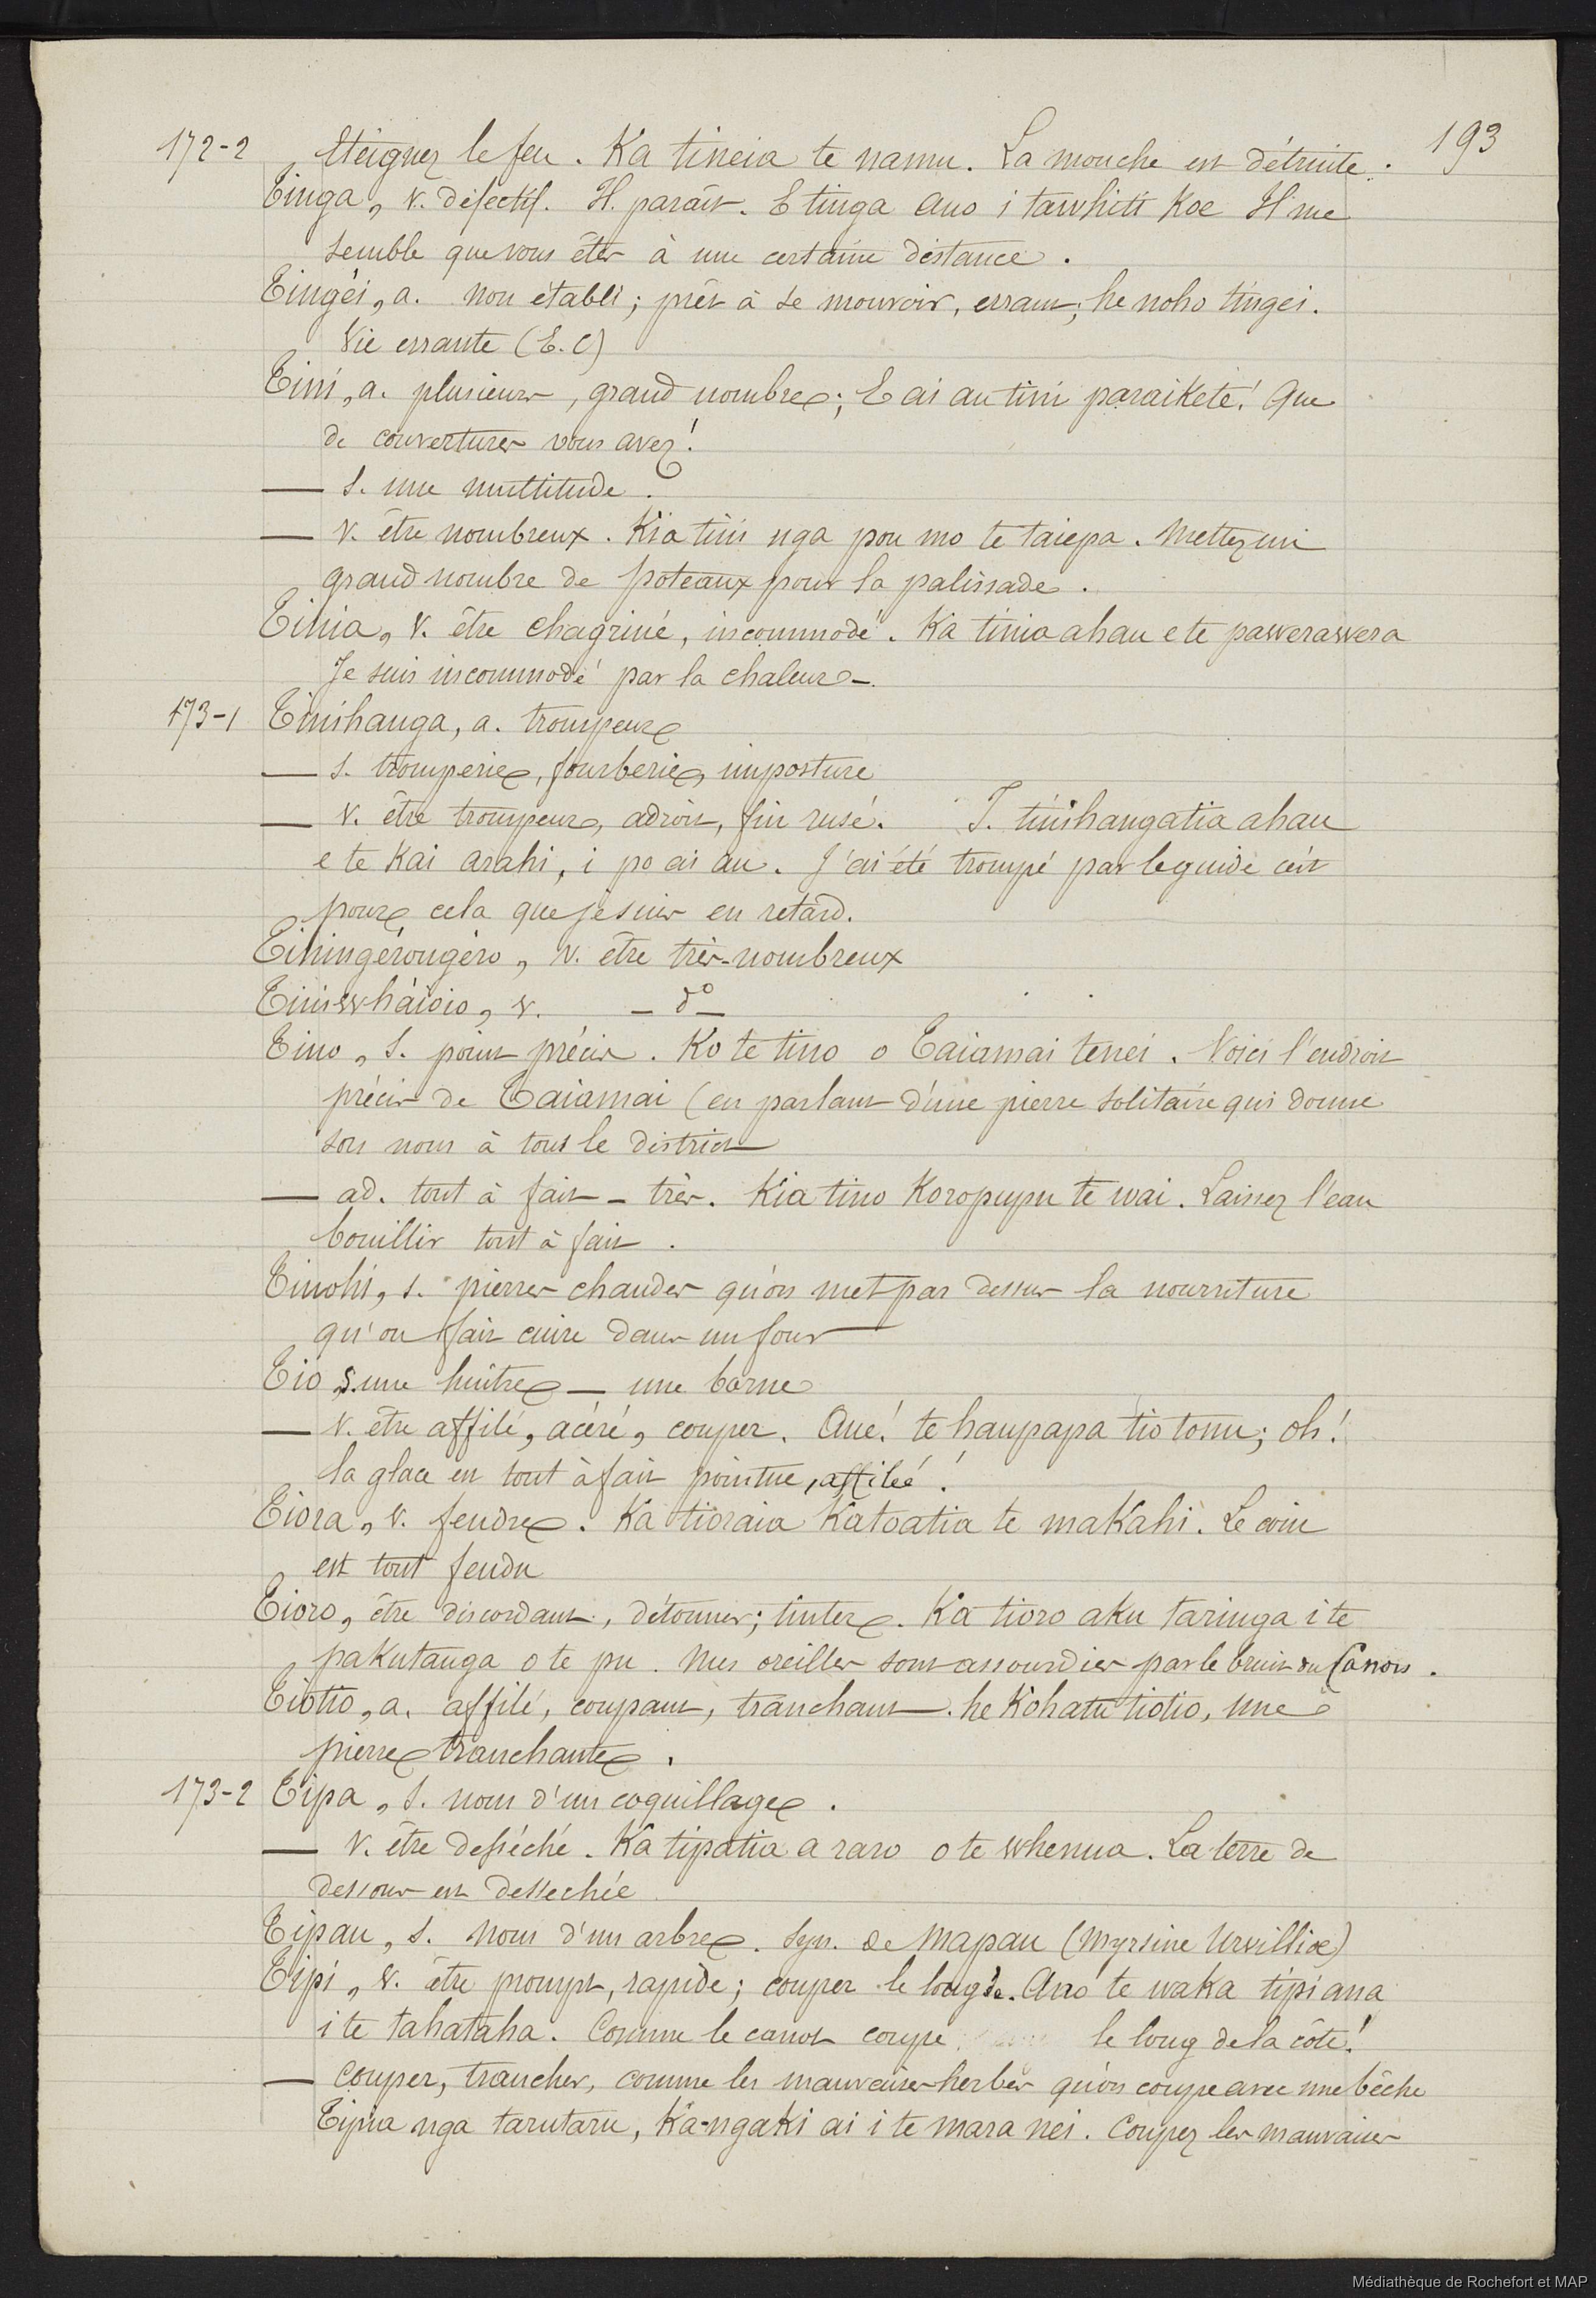 193
172-2 Eteignez le feu. Ka tineia te namu. La mouche est détruite.
Tinga, v. défectif. Il paraît. E tinga ano i tawhiti koe Il me
semble que vous êtes à une certaine distance.
Tingéi, a. non établi; prêt à se mouvoir, errant; he noho tingei.
Vie errante (E.C)
Tini, a. plusieurs, grand nombre; E ai au tini paraikete! Que
de couvertures vous avez!
— s. une multitude.
— v. être nombreux. Kia tini nga pou mo te taiepa. Mettez un
grand nombre de poteaux pour la palissade.
Tinia, v. être chagriné, incommodé. Ka tinia ahau e te pawerawera
Je suis incommodé par la chaleur.
173-1 Tinihanga, a. trompeur
— s. tromperie, fourberie, imposture
— v. être trompeur, adroit, fin rusé. I. tinihangatia ahau
e te kai arahi, i po ai au. J'ai été trompé par le guide c'est
pour cela que je suis en retard.
Tiningérongéro, v. être très-nombreux
Tiniwháioio, v. — do —
Tino, s. point précis. Ko te tino o Taiamai tenei. Voici l'endroit
précis de Taiamai (en parlant d'une pierre solitaire qui donne
son nom à tout le district
— ad. tout à fait – très. Kia tino koropupu te wai. Laissez l'eau
bouillir tout à fait.
Tinohi, s. pierres chaudes qu'on met par dessus la nourriture
qu'on fait cuire dans un four
Tio s. une huître — une borne
— v. être affilé, acéré, couper. Aué! te haupapa tio tonu; oh!
la glace est tout à fait pointue, affilée!
Tiora, v. fendre. Ka tioraia katoatia te makahi. Le coin
est tout fendu
Tioro, être discordant, détonner; tinter. Ka tioro aku taringa i te
pakutanga o te pu. Mes oreilles sont assourdies par le bruit du canon.
Tiotio, a. affilé, coupant, tranchant. he kohatu tiotio, une
pierre tranchante.
173-2 Tipa, s. nom d'un coquillage.
— v. être desséché. Ka tipatia a raro o te whenua. La terre de
dessous est dessechée
Tipau, s. Nom d'un arbre. Syn. de Mapau (Myrsine Urvilliæ)
Tipi, v. être prompt, rapide; couper le long de. Ano te waka tipi ana
i te tahataha. Comme le canot coupe le long de la côte!
— Couper, trancher, comme les mauvaises herbes qu'on coupe avec une bêche
Tipia nga tarutaru, Ka-ngaki ai i te mara nei. Coupez les mauvaises
Médiathèque de Rochefort et MAP